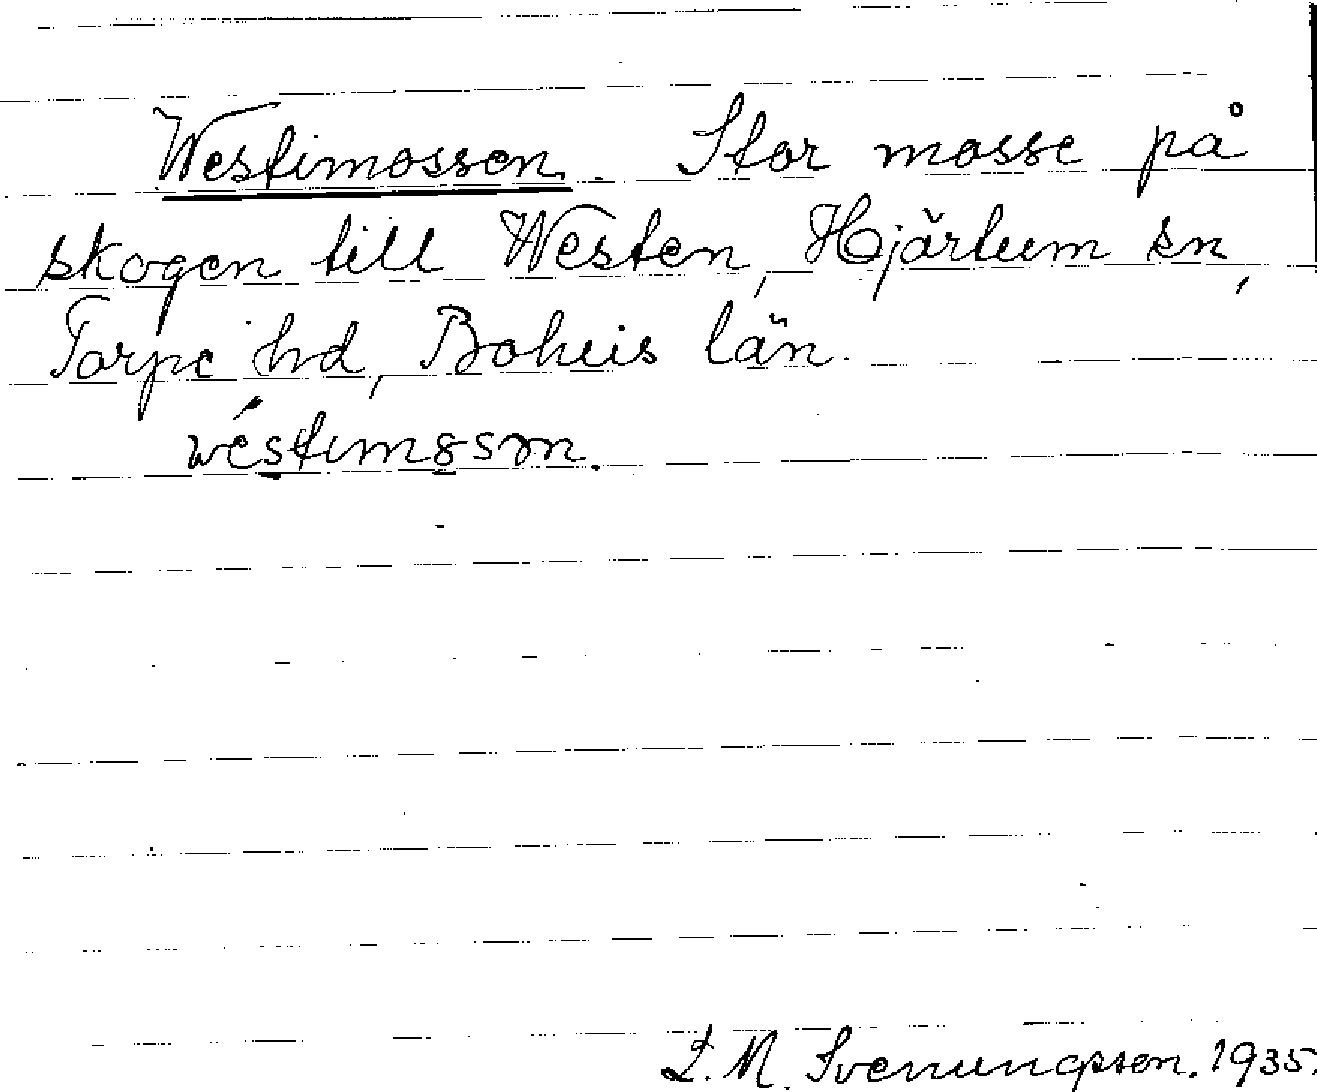 Westimossen. Stor mosse på
skogen till Westen, Hjärtum sn,
Torpe hd, Bohuis län.
wéstimosson.
L. M. Svenungsson. 1935.